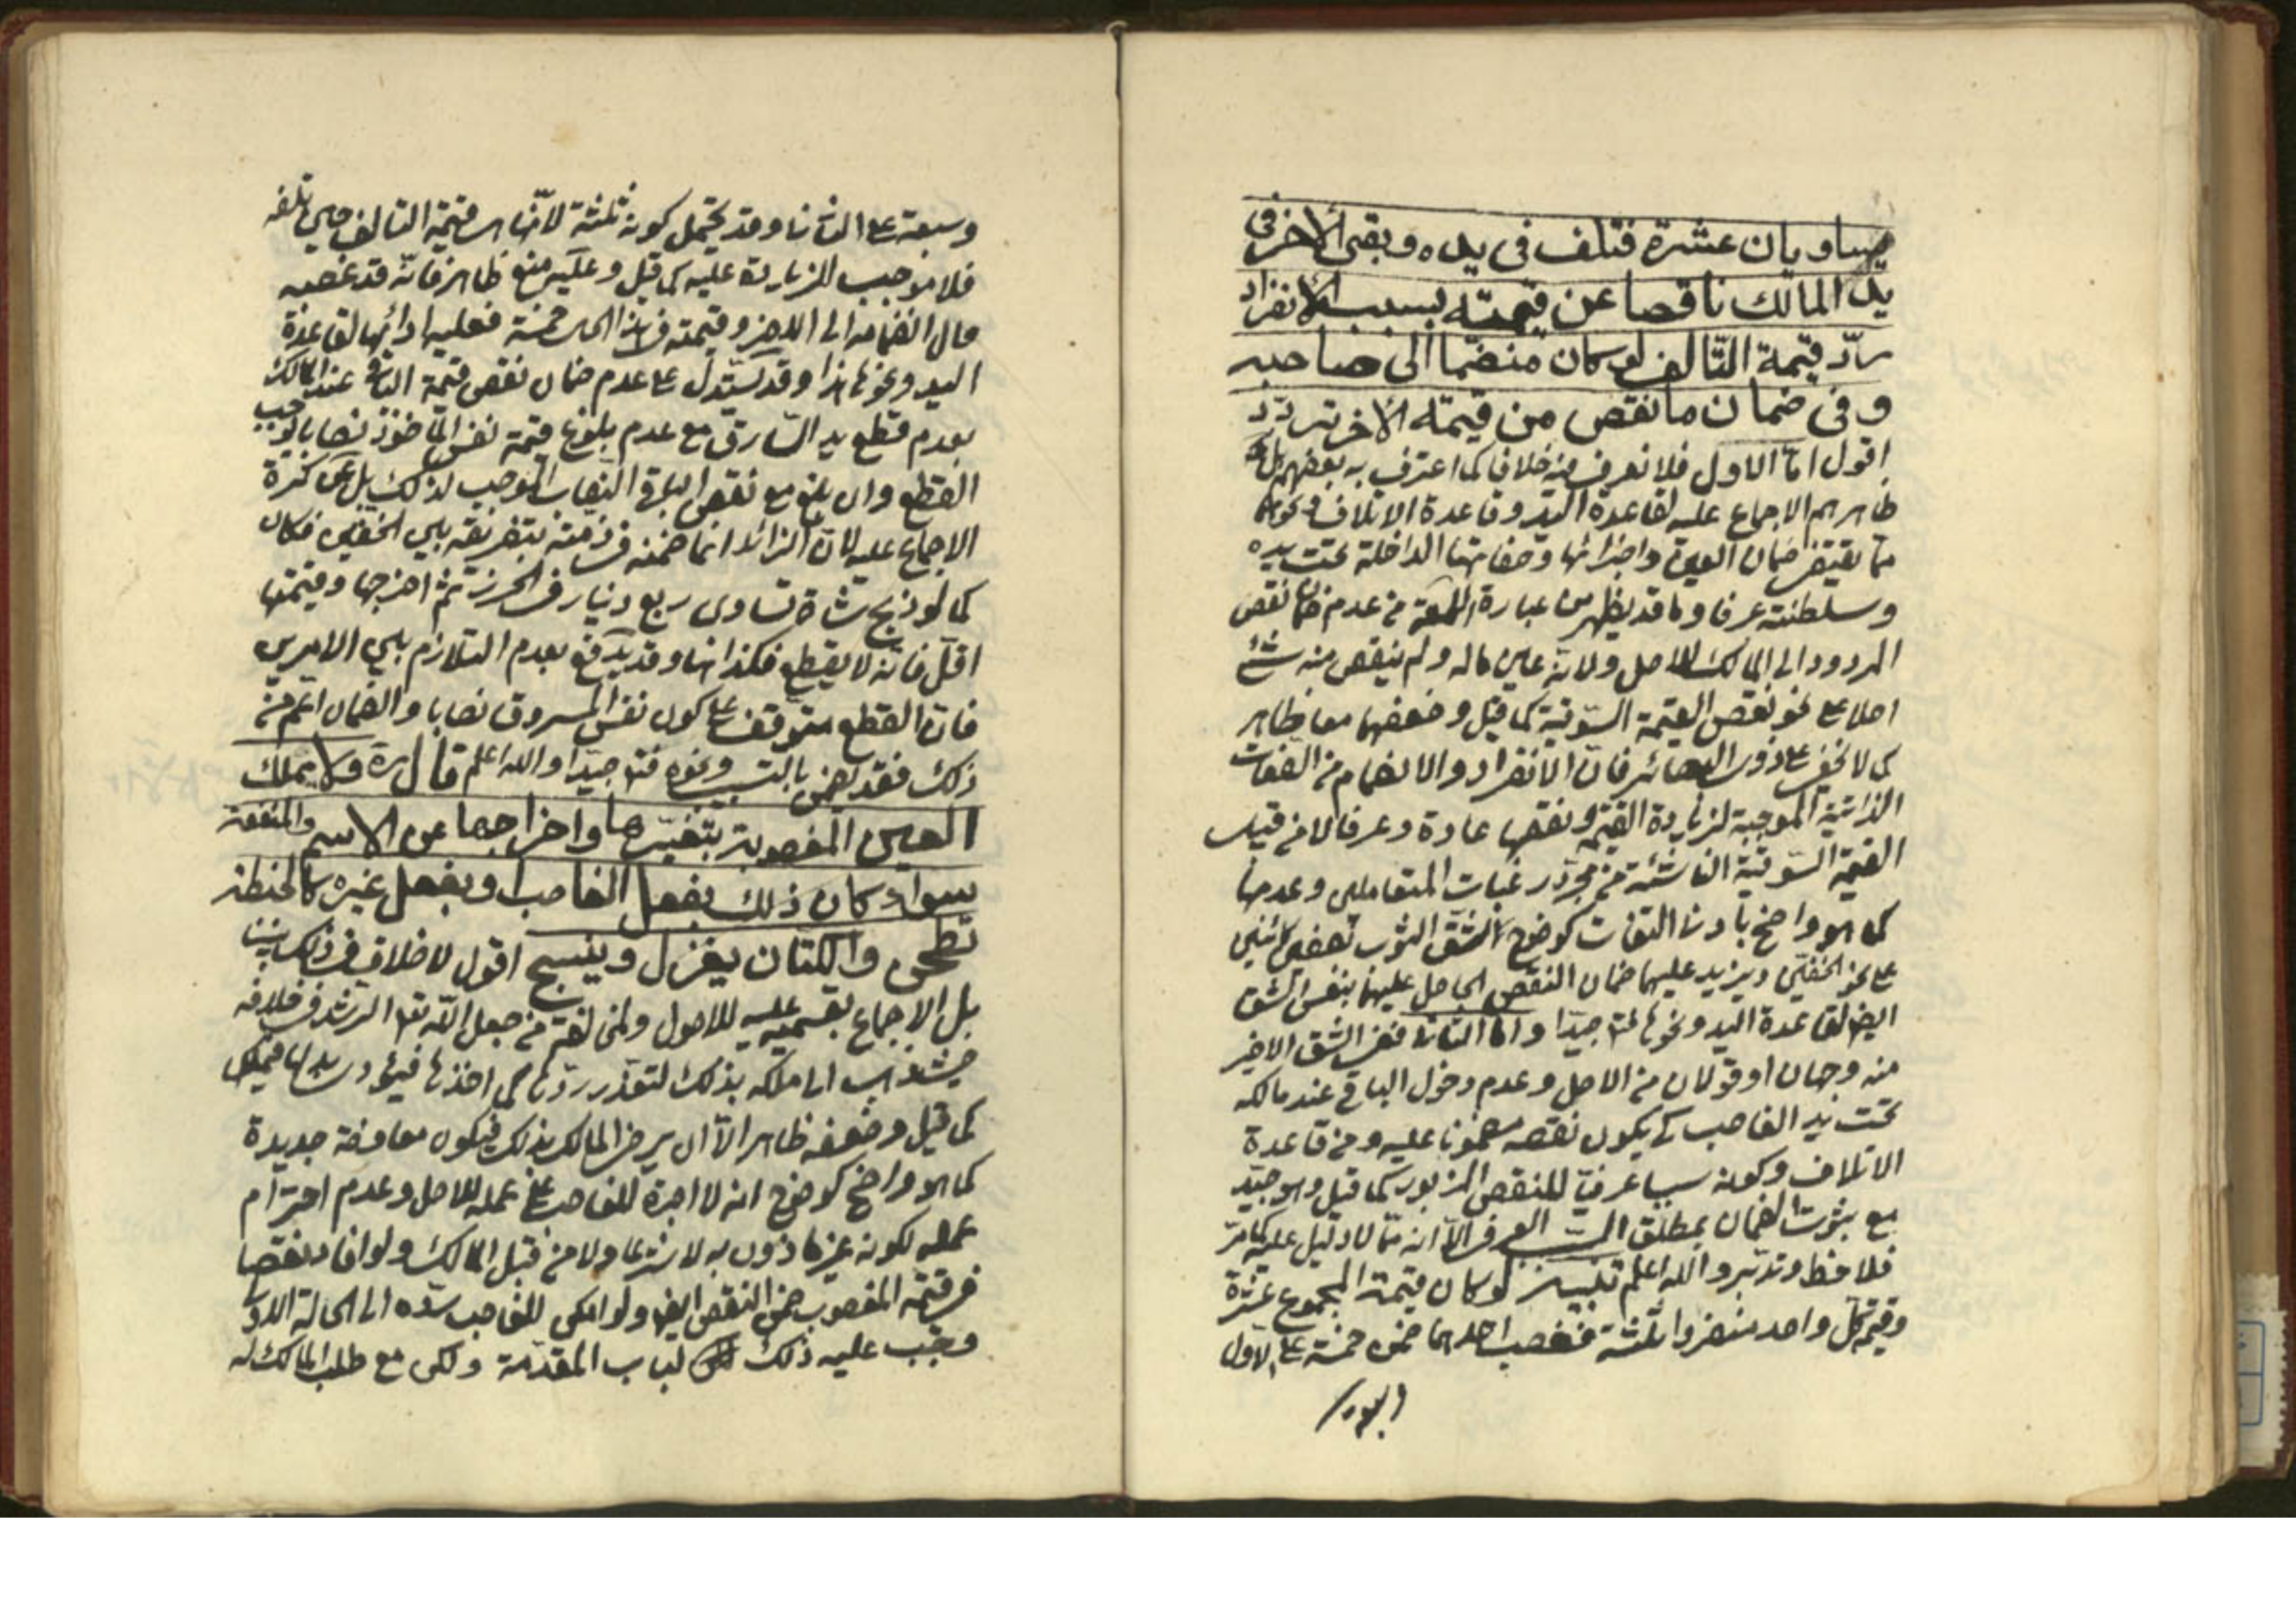 يساويان عشرة فتلف فى يده وبقى الاخر فى
يد المالك ناقصا عن قيمته بسبب الانفراد
ردّ قيمة التالف لو كان منضما الى صاحبه
وفى ضمان ما نقص من قيمته الاخر تردّد
اقول امّا الاول فلا نعرف فيه خلافا كما اعترف به بعضهم بل
ظاهرهم الاجماع عليه لقاعدة اليد وقاعدة الاتلاف ونحوهما
مما يقتضى ضمان العين واجزائها وصفاتها الداخلة تحت يده
وسلطنته عرفا وما قد يظهر من عبارة اللمعة من عدم ضمان نقص
المردود الى المالك للاصل ولانه عين ماله ولم ينقص منه شئ
اصلا على نحو نقص القيمة السوقية كما قيل وضعفهما معا ظاهر
كما لا يخفى على ذوى البصائر فان الانفراد والانضمام من الصفات
الذاتية الموجبة لزيادة القيمة ونقصها عادة وعرفا لا من قبيل
القيمة السوقية الناشئة من مجرّد رغبات المتعاملين وعدمها
كما هو واضح بادنى التفات كوضوح الشق الثوب نصفين كائنين
على نحو الخفين ويزيد عليهما ضمان النقص الحاصل عليهما بنفس الشق
ايضا لقاعدة اليد ونحوها فتدبّر جيدا واما الثانى ففى الشق الاخير
منه وجهان او قولان من الاصل وعدم دخول الباقى عند مالكه
تحت يد الغاصب كى يكون نقصه مضمونا عليه ومن قاعدة
الاتلاف وكونه سببا عرفيّا للنقص المزبور كما قيل وهو جيّد
مع ثبوت الضمان بمطلق السبب العرفى الا انه مما لا دليل عليه كما مرّ
فلاحظ وتدبّر والله اعلم لو كان قيمة المجموع عشرة
وقيمة كل واحد منفردا ثلثة فغصب احدهما ضمن خمسة على الاول
وسبعة على الثانى وقد يحتمل كونه ثلثة لانها قيمة التالف حين تلفه
فلا موجب للزيادة عليه كما قيل وعليه منع ظاهر فانه قد غصبه
حال انضمامه الى الاخر وقيمته فى هذا الحال خمسة فعليه ادائها لقاعدة
اليد ونحوها هذا وقد يستدل على عدم ضمان نقص قيمة الباقى عند المالك
بعدم قطع يد السارق مع عدم بلوغ قيمة نفس المأخوذ نصابا يوجب
القطع وان بلغ مع نقص الباقى النصاب الموجب لذلك بل عن كرة
الاجماع عليه لان الزائد انما ضمنه فى ذمته بتفريقه بين الخفين فكان
كما لو ذبح شاة تساوى ربع دينار فى الحرز ثم اخرجها وقيمتها
اقل فانه لا يقطع فكذا هنا وقد يدفع بعدم التلازم بين الامرين
فان القطع متوقف على كون نفس المسروق نصابا والضمان اعم من
ذلك فقد يضمن بالسبب ونحوه فتدبر جيدا والله اعلم قال ره ولا يملك
العين المغصوبة بتغييرها واخراجها عن الاسم والمنفعة
سواء كان ذلك بفعل الغاصب او بفعل غيره كالحنطة
تطحن والكتان يغزل وينسج اقول لا خلاف فى ذلك بيننا
بل الاجماع بقسميه عليه للاصول ولمخالفة من جعل الله تعالى الرشد فى خلافه
الى ملكه بذلك لتعذر ردّها كما اخذها
كما قيل وضعفه ظاهر الا ان يرضى المالك بذلك فيكون معاوضة جديدة
كما هو واضح كوضوح انه لا اجرة للغاصب على عمله للاصل وعدم احترام
عمله لكونه غير مأذون به لا شرعا ولا من قبل المالك ولو افاد نقصا
فى قيمة المغصوب ضمن النقص ايضا ولو امكن للغاصب ردّه الى الحالة الاولى
وجب عليه ذلك من باب المقدّمة ولكن مع طلب المالك له